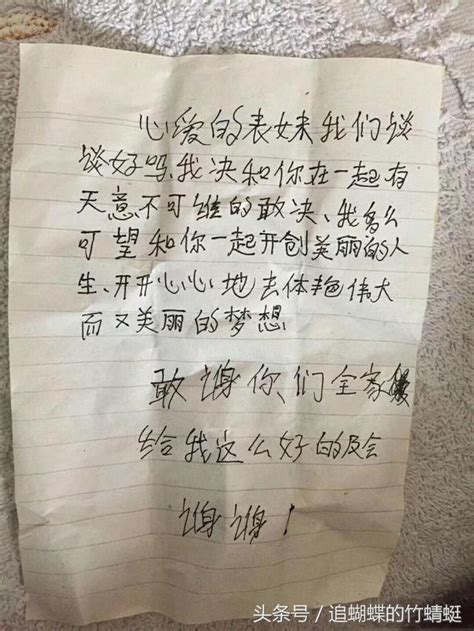 心爱的表妹我们谈
谈好吗、我决和你在一起有
天意不可维的敢决、我多么
可望和你一起开创美丽的人
生、开开心心地去体艳伟大
而又美丽的梦想
敢谢你、们全家
给我这么好的及会
谢谢!
头条号/追蝴蝶的竹蜻蜓